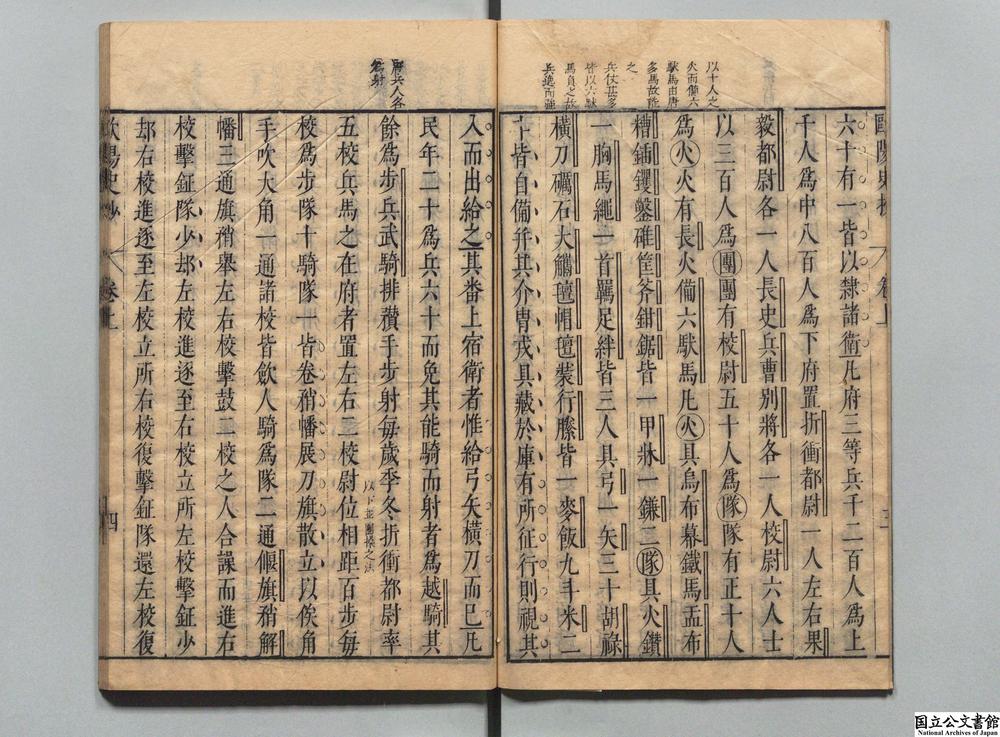 以十人之
火而備六
馱馬由唐
多馬故能
之
兵仗甚多
皆以六馱
馬負之故
兵逸而強
歐陽史抄 卷上 三
六十有一皆以隸諸衛凡府三等兵千二百人爲上
千人爲中八百人爲下府置折衝都尉一人左右果
毅都尉各一人長史兵曹別將各一人校尉六人士
以三百人爲團團有校尉五十人爲隊隊有正十人
爲火火有長火備六馱馬凡火具烏布幕鐵馬盂布
槽鍤钁鑿碓筐斧鉗鋸皆一甲牀一鎌二隊具火鑽
一胸馬繩一首羈足絆皆三人具弓一矢三十胡祿
橫刀礪石大觿氊帽氊裝行縢皆一麥飯九斗米二
斗皆自備幷其介冑戎具藏於庫有所征行則視其
府兵人各
射
入而出給之其番上宿衛者惟給弓矢橫刀而已凡
民年二十爲兵六十而免其能騎而射者爲越騎其
餘爲步兵武騎排䂎手步射每歲季冬折衝都尉率
以下並團操之法
五校兵馬之在府者置左右二校尉位相距百步每
校爲步隊十騎隊一皆卷矟幡展刀旗散立以俟角
手吹大角一通諸校皆歛人騎爲隊二通偃旗矟解
幡三通旗矟舉左右校擊鼓二校之人合譟而進右
校擊鉦隊少却左校進逐至右校立所左校擊鉦少
却右校進逐至左校立所右校復擊鉦隊還左校復
歐陽史抄 卷上 四
国立公文書館
National Archives of Japan